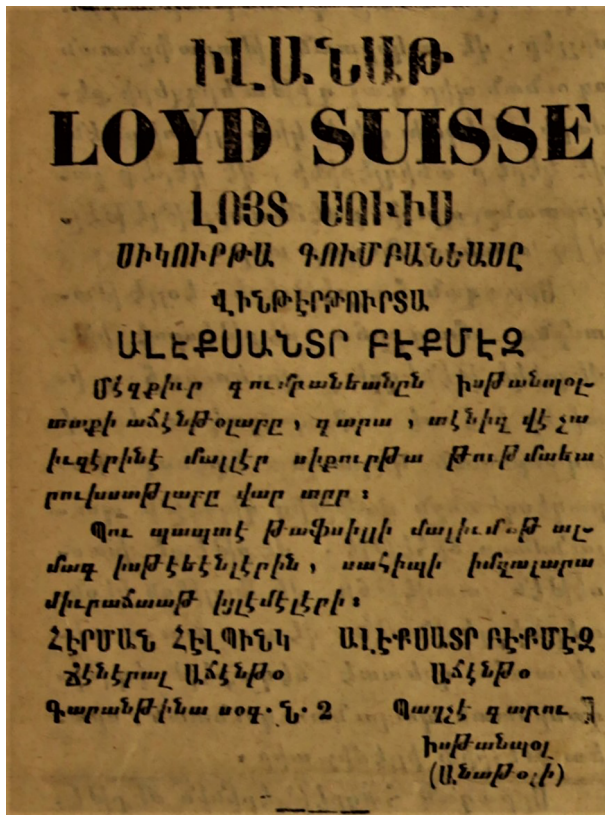 ԻԼԱՆԱԹ
LOYD SUISSE
ԼՈՅՏ ՍՈՒԻՍ
ՍԻԿՈՒՐԹԱ ԳՈՒՄԲԱՆԵԱՍԸ
ՎԻՆԹԷՐԹՈՒՐՏԱ
ԱԼԵՔՍԱՆՏՐ ԲԷՔՄԷԶ
Մէզքիւր գումբանեանըն իսթանպօլ-
տաքի աճէնթօլարը, գարա, տէնիզ վէ չա
իւզէրինէ մալլէր սիքուրթա թութմաեա
րուխսաթլարը վար տըր ։
Պու պապտէ թաֆսիլլի մալիւմաթ ալ-
մագ իսթէեէնլէրին, սահիպի իմզալարա
միւրաճաաթ իյլէմէլէրի ։
ՀԷՐՄԱՆ ՀԷԼՊԻՆԿ ԱԼԷՔՍԱՏՐ ԲԷՔՄԷԶ
Ճէնէրալ Աճէնթօ Աճէնթօ
Գարանթինա սօգ. Ն. 2 Պաղչէ գարու
Իսթանպօլ
(Անաթօլի)